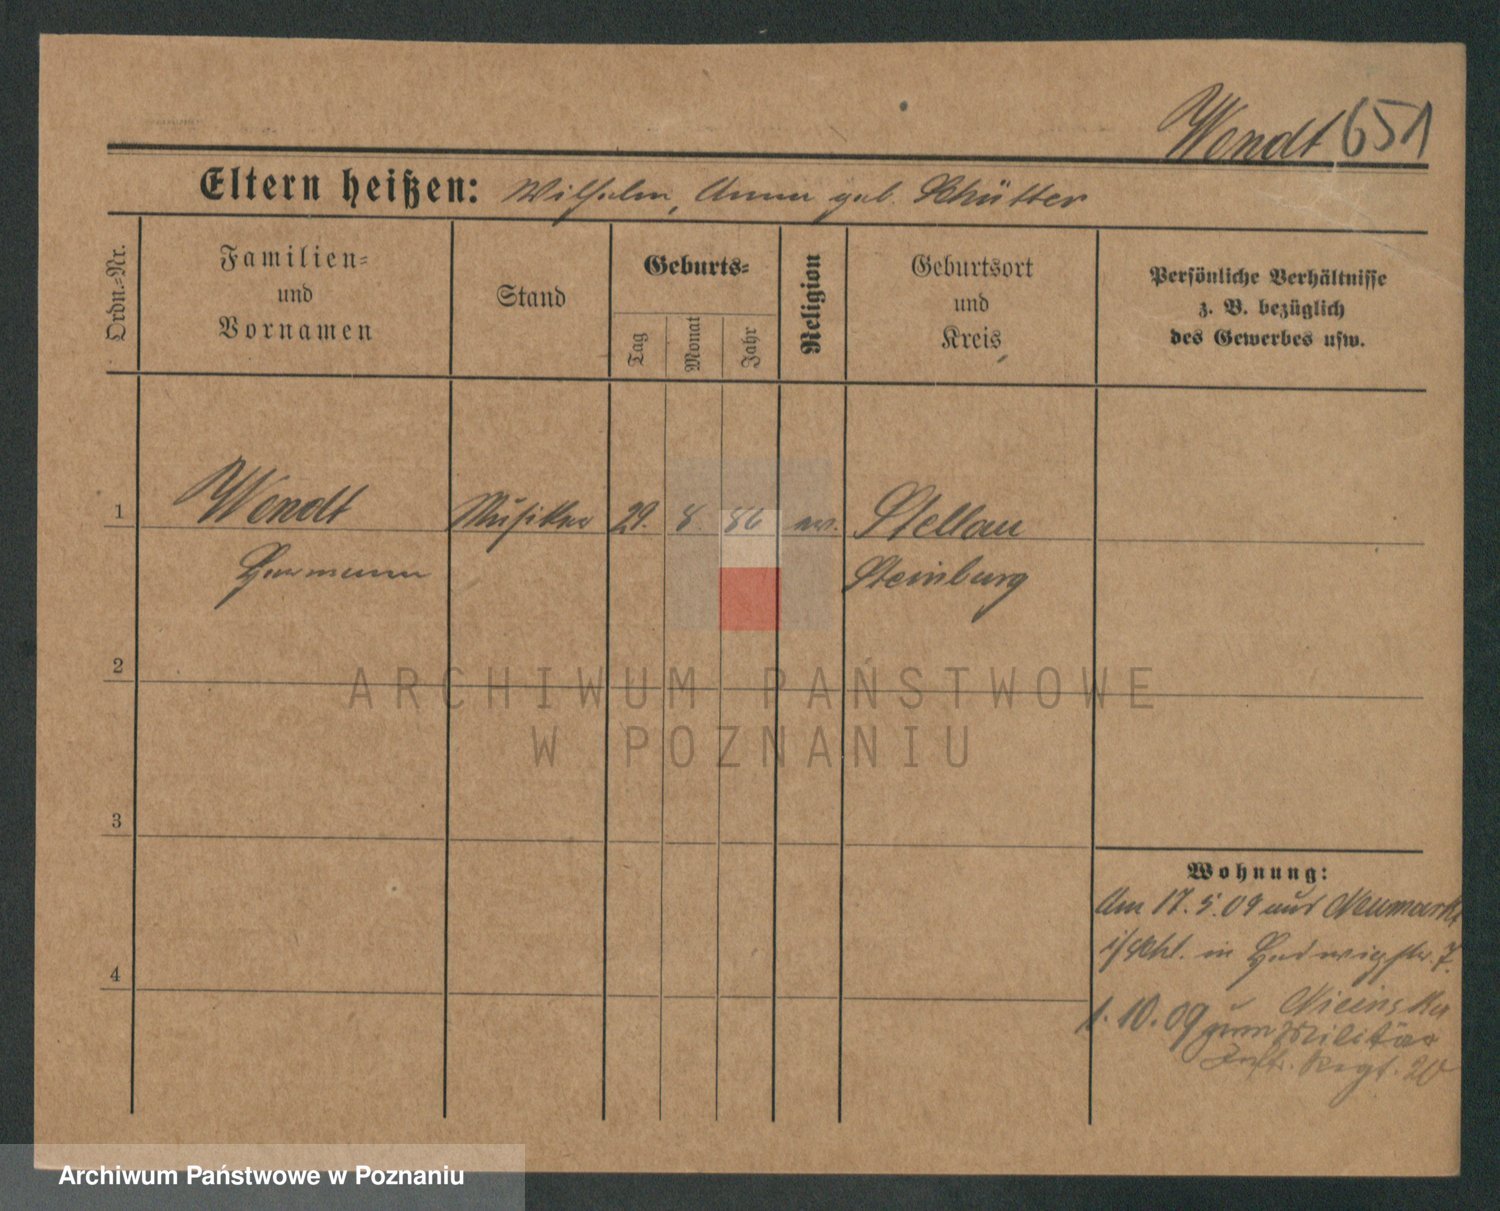 Wendt 651
Eltern heißen: Wilhelm, Anna geb. Schütter
Ordn.=Nr.
Familien=
und
Vornamen
Stand
Geburts=
Tag
Monat
Jahr
Religion
Geburtsort
und
Kreis
Persönliche Verhältnisse
z. B. bezüglich
des Gewerbes usw.
1 Wendt Musiker 29. 8. 86 ev. Stellau
Hermann Steinburg
2
3
4
Wohnung:
Am 17. 5. 09 aus Neumarkt
i/Schl. in Hedwigstr. 7.
1. 10. 09 zum Militär
Inft. Regt. 20
ARCHIWUM PAŃSTWOWE
W POZNANIU
Archiwum Państwowe w Poznaniu